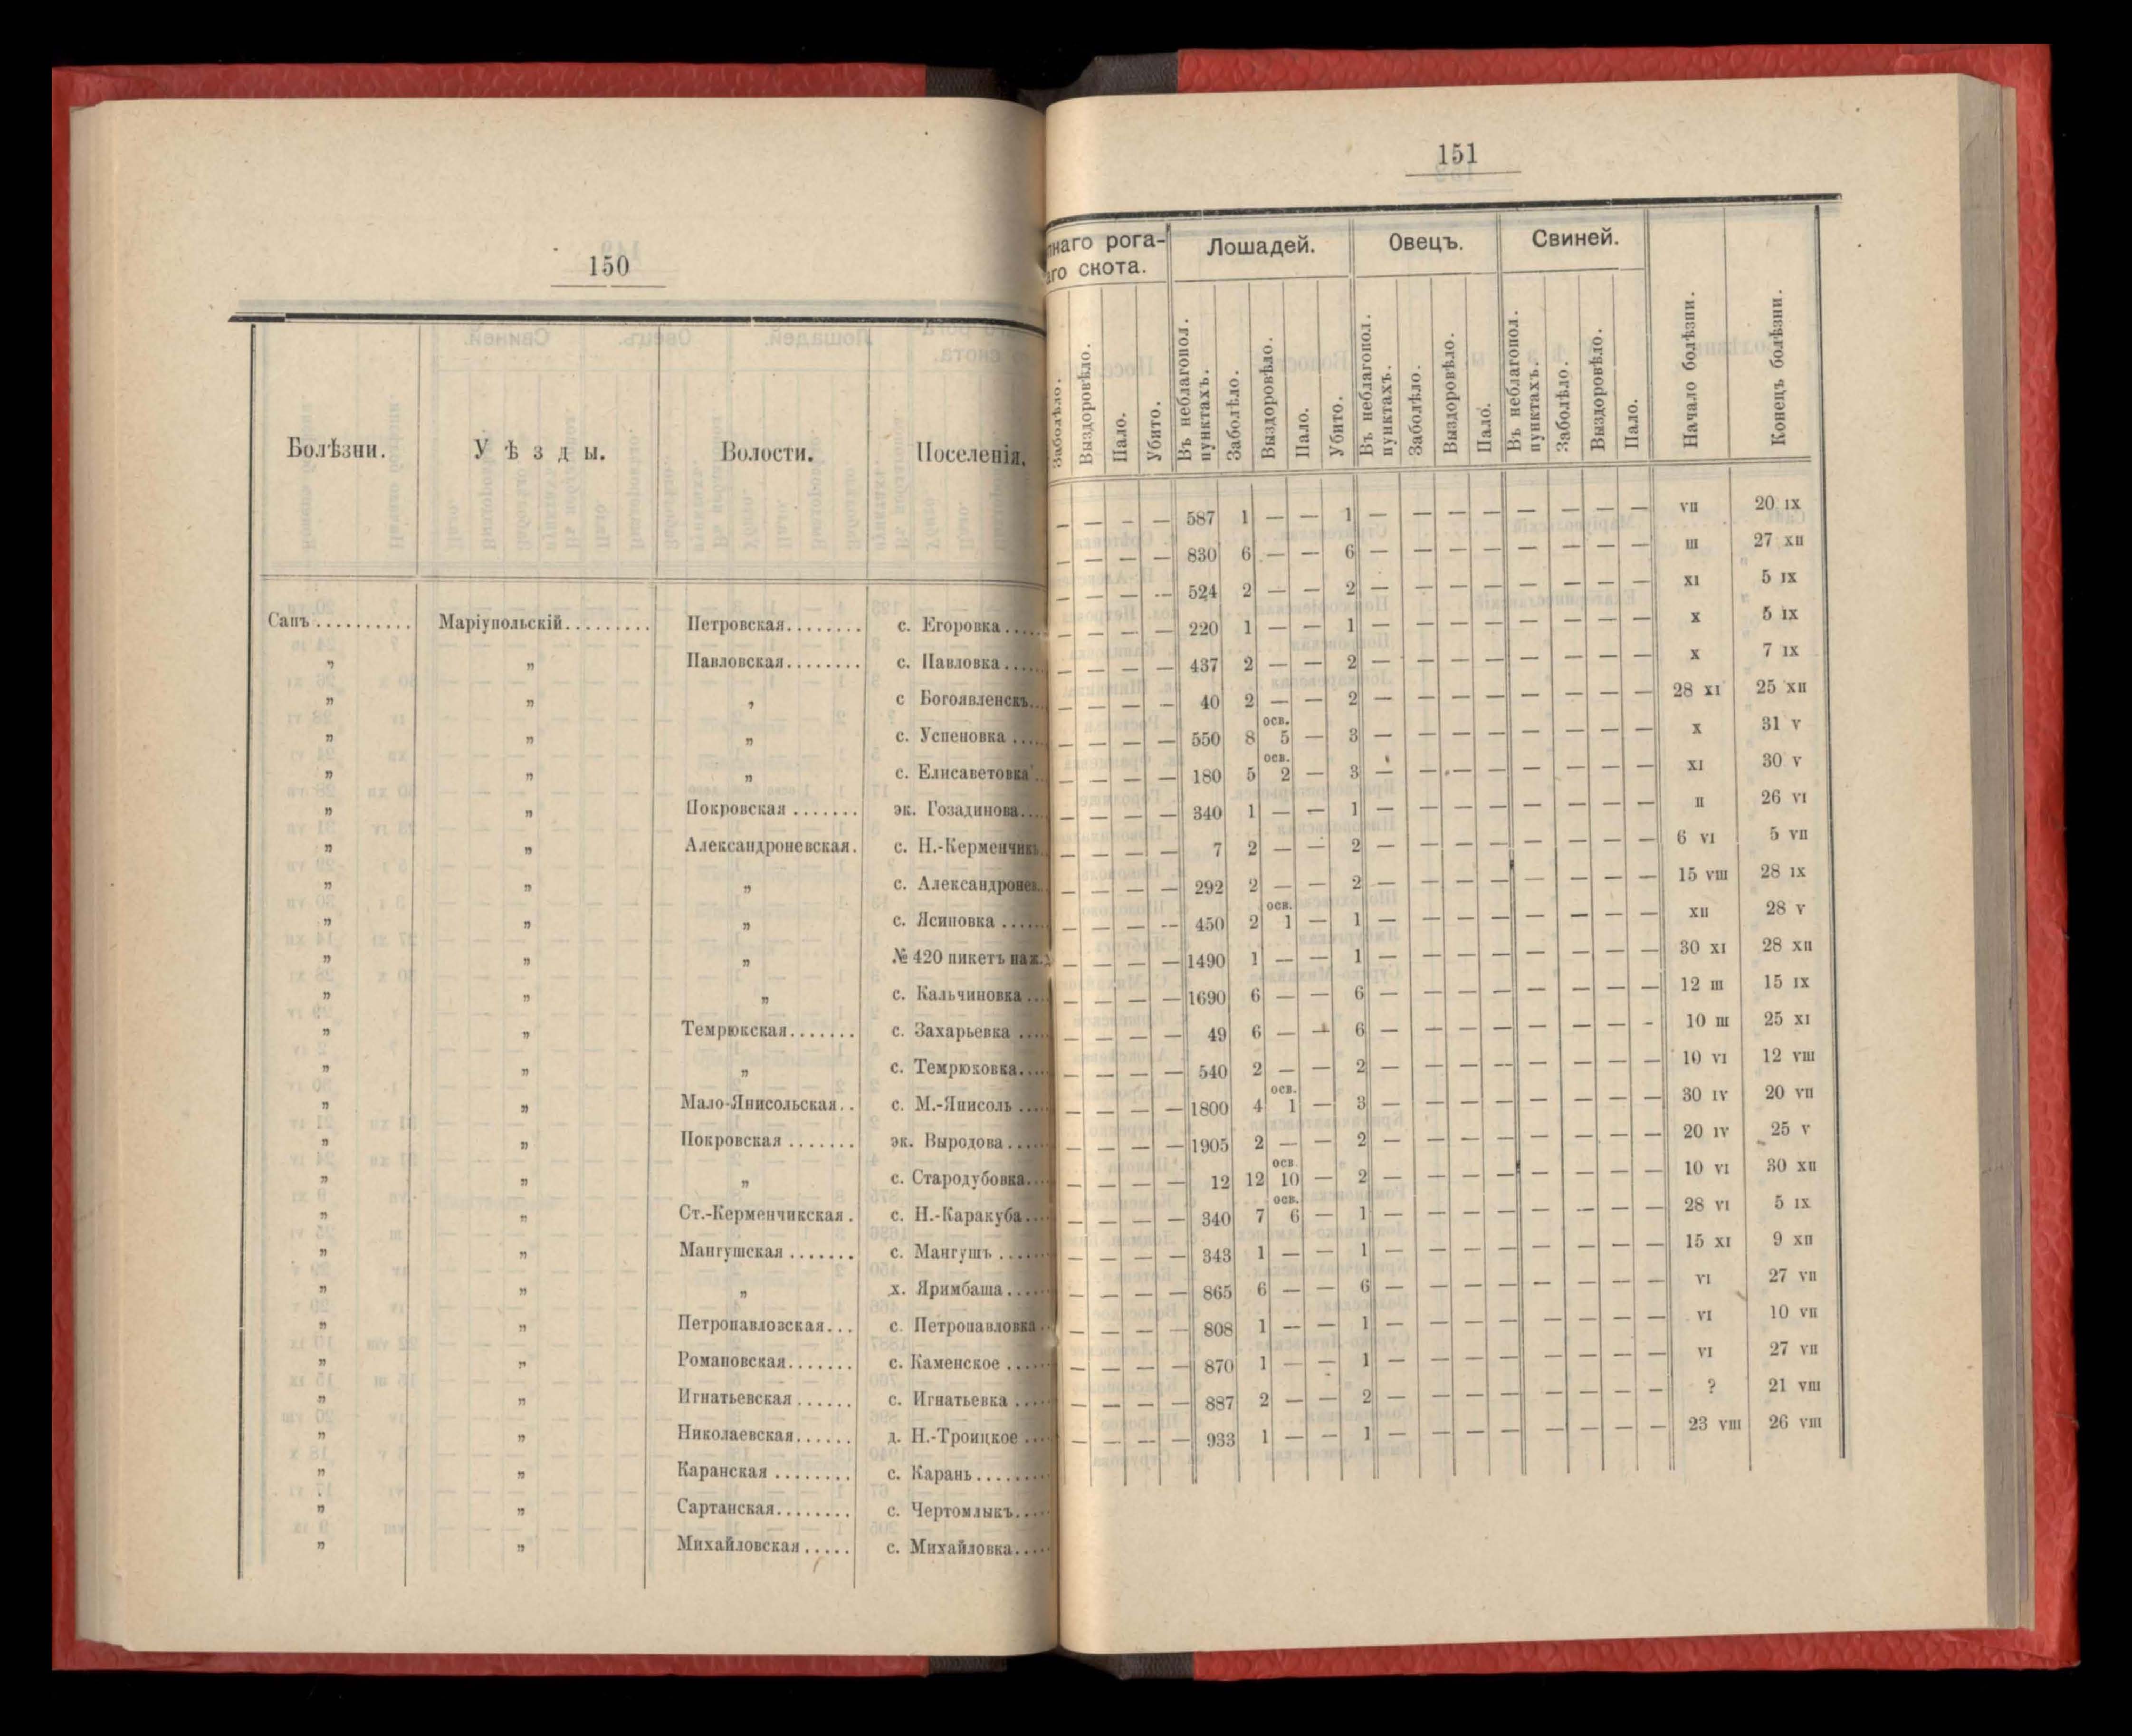 150
Болѣзни. Уѣзды. Волости. Поселенія.
Сапъ.......... Маріупольскій......... Петровская........ с. Егоровка.....
„ „ Павловская........ с. Павловка.....
„ „ „ с Богоявленскъ..
„ „ „ с. Успеновка ....
„ „ „ с. Елисаветовка ..
„ „ Покровская ....... эк. Гозадинова...
„ „ Александроневская. с. Н.-Керменчикъ.
„ „ „ с. Александронев..
„ „ „ с. Ясиновка .....
„ „ „ № 420 пикетъ наж.
„ „ „ с. Кальчиновка ...
„ „ Темрюкская....... с. Захарьевка ....
„ „ „ с. Темрюковка....
„ „ Мало-Янисольская.. с. М.-Янисоль ....
„ „ Покровская ....... эк. Выродова .....
„ „ „ с. Стародубовка...
„ „ Ст.-Керменчикская. с. Н.-Каракуба....
„ „ Мангушская ....... с. Мангушъ ......
„ „ „ х. Яримбаша .....
„ „ Петропавловская... с. Петропавловка..
„ „ Романовская....... с. Каменское .....
„ „ Игнатьевская ...... с. Игнатьевка ....
„ „ Николаевская...... д. Н.-Троицкое ....
„ „ Каранская ........ с. Карань........
„ „ Сартанская........ с. Чертомлыкъ....
„ „ Михайловская ..... с. Михайловка....
151
пнаго рога- Лошадей. Овецъ. Свиней.
аго скота.
Заболѣло. Выздоровѣло. Пало. Убито. Въ неблагопол. пунктахъ. Заболѣло. Выздоровѣло. Пало. Убито. Въ неблагопол. пунктахъ. Заболѣло. Выздоровѣло. Пало. Въ неблагопол. пунктахъ. Заболѣло. Выздоровѣло. Пало. Начало болѣзни. Конецъ болѣзни.
— — — — 587 1 — — 1 — — — — — — — — VII 20 IX
— — — — 830 6 — — 6 — — — — — — — — III 27 XII
— — — — 524 2 — — 2 — — — — — — — — XI 5 IX
— — — — 220 1 — — 1 — — — — — — — — X 5 IX
— — — — 437 2 — — 2 — — — — — — — — X 7 IX
— — — — 40 2 — — 2 — — — — — — — — 28 XI 25 XII
осв.
— — — — 550 8 5 — 3 — — — — — — — — X 31 V
осв.
— — — — 180 5 2 — 3 — — — — — — — — XI 30 V
— — — — 340 1 — — 1 — — — — — — — — II 26 VI
— — — — 7 2 — — 2 — — — — — — — — 6 VI 5 VII
— — — — 292 2 — — 2 — — — — — — — — 15 VIII 28 IX
осв.
— — — — 450 2 1 — 1 — — — — — — — — XII 28 V
— — — — 1490 1 — — 1 — — — — — — — — 30 XI 28 XII
— — — — 1690 6 — — 6 — — — — — — — — 12 III 15 IX
— — — — 49 6 — — 6 — — — — — — — — 10 III 25 XI
— — — — 540 2 — — 2 — — — — — — — — 10 VI 12 VIII
осв.
— — — — 1800 4 1 — 3 — — — — — — — — 30 IV 20 VII
— — — — 1905 2 — — 2 — — — — — — — — 20 IV 25 V
осв.
— — — — 12 12 10 — 2 — — — — — — — — 10 VI 30 XII
осв.
— — — — 340 7 6 — 1 — — — — — — — — 28 VI 5 IX
— — — — 343 1 — — 1 — — — — — — — — 15 XI 9 XII
— — — — 865 6 — — 6 — — — — — — — — VI 27 VII
— — — — 808 1 — — 1 — — — — — — — — VI 10 VII
— — — — 870 1 — — 1 — — — — — — — — VI 27 VII
— — — — 887 2 — — 2 — — — — — — — — ? 21 VIII
— — — — 933 1 — — 1 — — — — — — — — 23 VIII 26 VIII